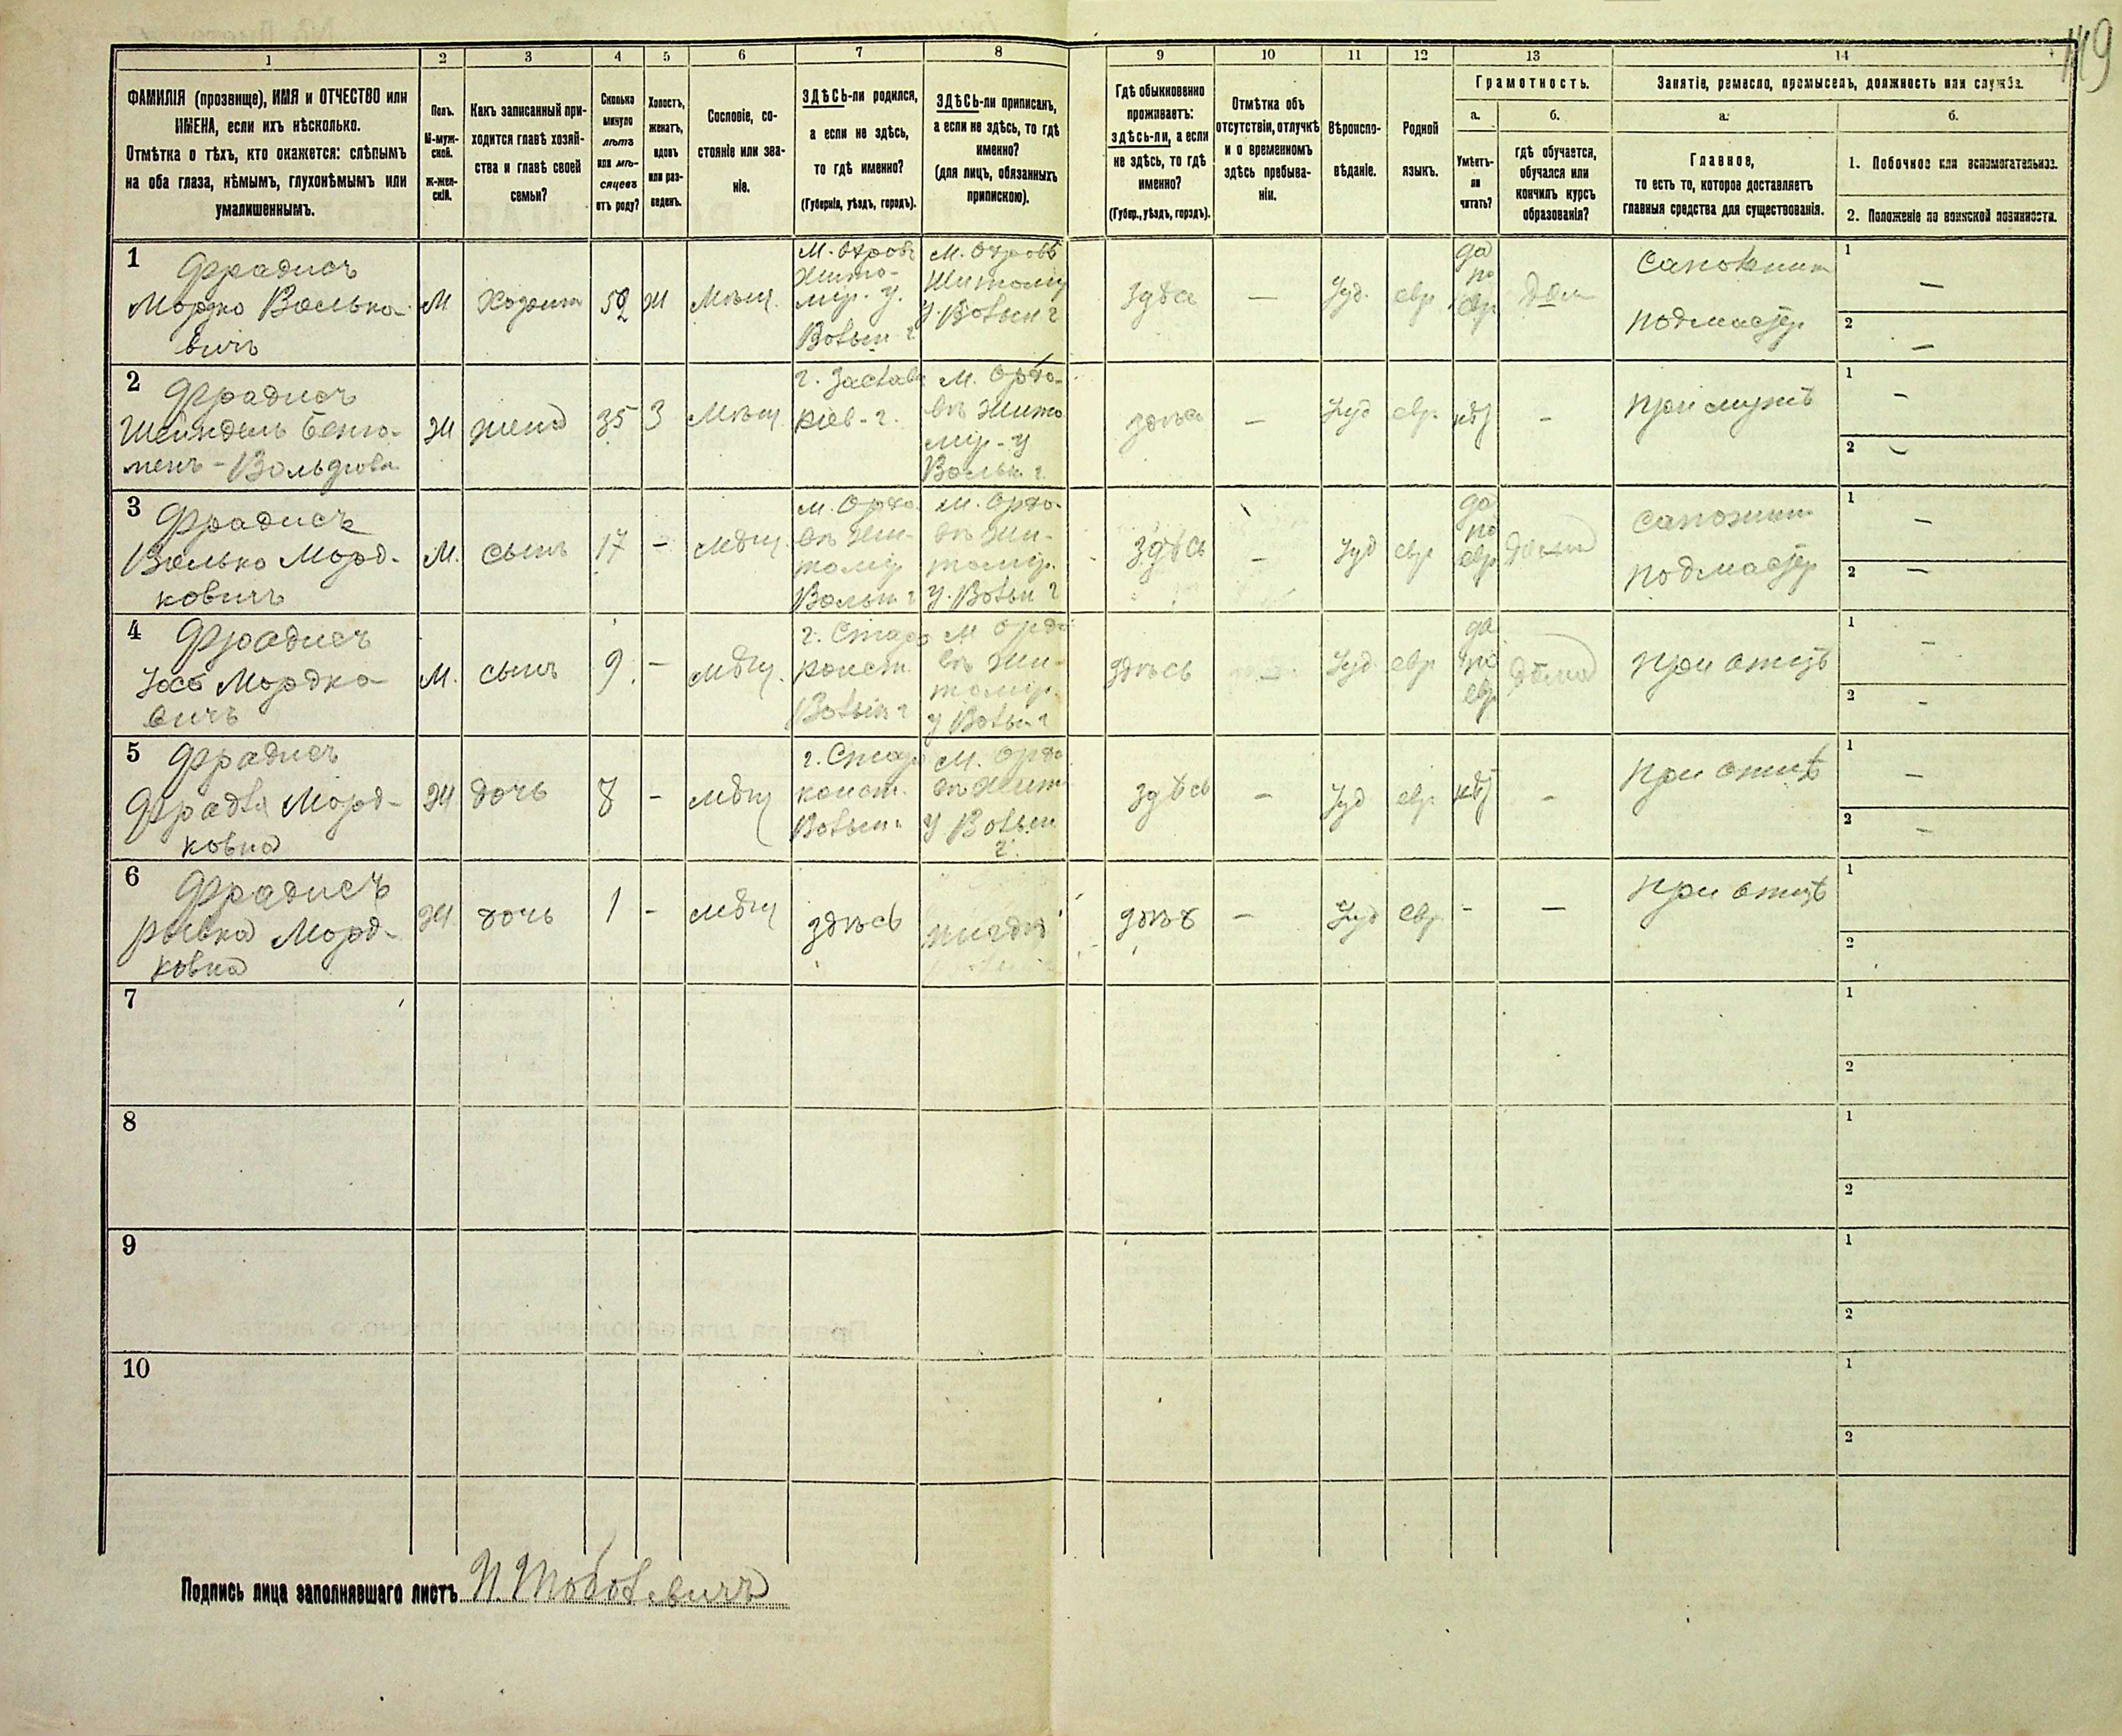 149
1 2 3 4 5 6 7 8 9 10 11 12 13 14
ФАМИЛІЯ (прозвище), ИМЯ и ОТЧЕСТВО или
ИМЕНА, если ихъ нѣсколько.
Отмѣтка о тѣхъ, кто окажется: слѣпымъ
на оба глаза, нѣмымъ, глухонѣмымъ или
умалишеннымъ.
Полъ.
М-муж-
ской.
Ж-жен-
скій.
Какъ записанный при-
ходится главѣ хозяй-
ства и главѣ своей
семьи?
Сколько
минуло
лѣтъ
или мѣ-
сяцевъ
отъ роду?
Холостъ,
женатъ,
вдовъ
или раз-
веденъ.
Сословіе, со-
стояніе или зва-
ніе.
ЗДѢСЬ-ли родился,
а если не здѣсь,
то гдѣ именно?
(Губернія, уѣздъ, городъ).
ЗДѢСЬ-ли приписанъ,
а если не здѣсь, то гдѣ
именно?
(для лицъ, обязанныхъ
припискою).
Гдѣ обыкновенно
проживаетъ:
здѣсь-ли, а если
не здѣсь, то гдѣ
именно?
(Губер., уѣздъ, городъ).
Отмѣтка объ
отсутствіи, отлучкѣ
и о временномъ
здѣсь пребыва-
ніи.
Вѣроиспо-
вѣданіе.
Родной
языкъ.
Грамотность.
а.
Умѣетъ-
ли
читать?
б.
гдѣ обучается,
обучался или
кончилъ курсъ
образованія?
Занятіе, ремесло, промыселъ, должность или служба.
а.
Главное,
то есть то, которое доставляетъ
главныя средства для существованія.
б.
1. Побочное или вспомогательное.
2. Положеніе по воинской повинности.
1
Фрадисъ
Мордко Волько
вичъ
М
Хозяин
Ж
Мѣщ.
Жито-
мір. у.
Волын г
Житомір
у. Волын г
здѣс
—
Іуд.
евр
да
по
евр
дом
сапожник
подмастер
1 —
2 —
2
Фрадисъ
Шейндель Беню-
менъ-Вольфова
Ж
жена
35
З
Мѣщ.
г. Заслав
Кіев-г.
Жито
мір-у
Волын г
здѣсь
—
Іуд
евр.
нѣт
—
при мужѣ
1 —
2 —
3
Фрадисъ
Волько Морд-
ковичъ
М.
сынъ
17
—
мѣщ
Жи-
томір
Волын г
Жи-
томір.
у. Волын г
здѣсь
—
Іуд
евр
да
по
евр
дома
сапожник
подмастер
1 —
2 —
4
Фрадисъ
Іось Мордко
вичъ
М.
сынъ
9.
—
мѣщ.
г. Старо
конст.
Волын г
Жи-
томір.
у Волын г
здѣсь
—
Іуд
евр
да
по
евр
дома
при отцѣ
1 —
2 -
5
Фрадисъ
Фрадля Морд-
ковна
Ж
дочь
8
—
мѣщ
г. Старо
конст.
Волын.
Жит
у Волын
г.
здѣсь
—
Іуд
евр.
нѣт
—
при отцѣ
1 —
2 —
6
Фрадисъ
Рывка Морд-
ковна
Ж
дочь
1
—
мѣщ
здѣсь
—
Іуд
евр.
-
—
при отцѣ
1
2
7
1
2
8
1
2
9
1
2
10
1
2
Подпись лица заполнявшаго листъ